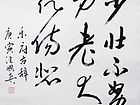 少壮不努
力老大
徒伤悲
乐府古辞
庚寅汪国兵